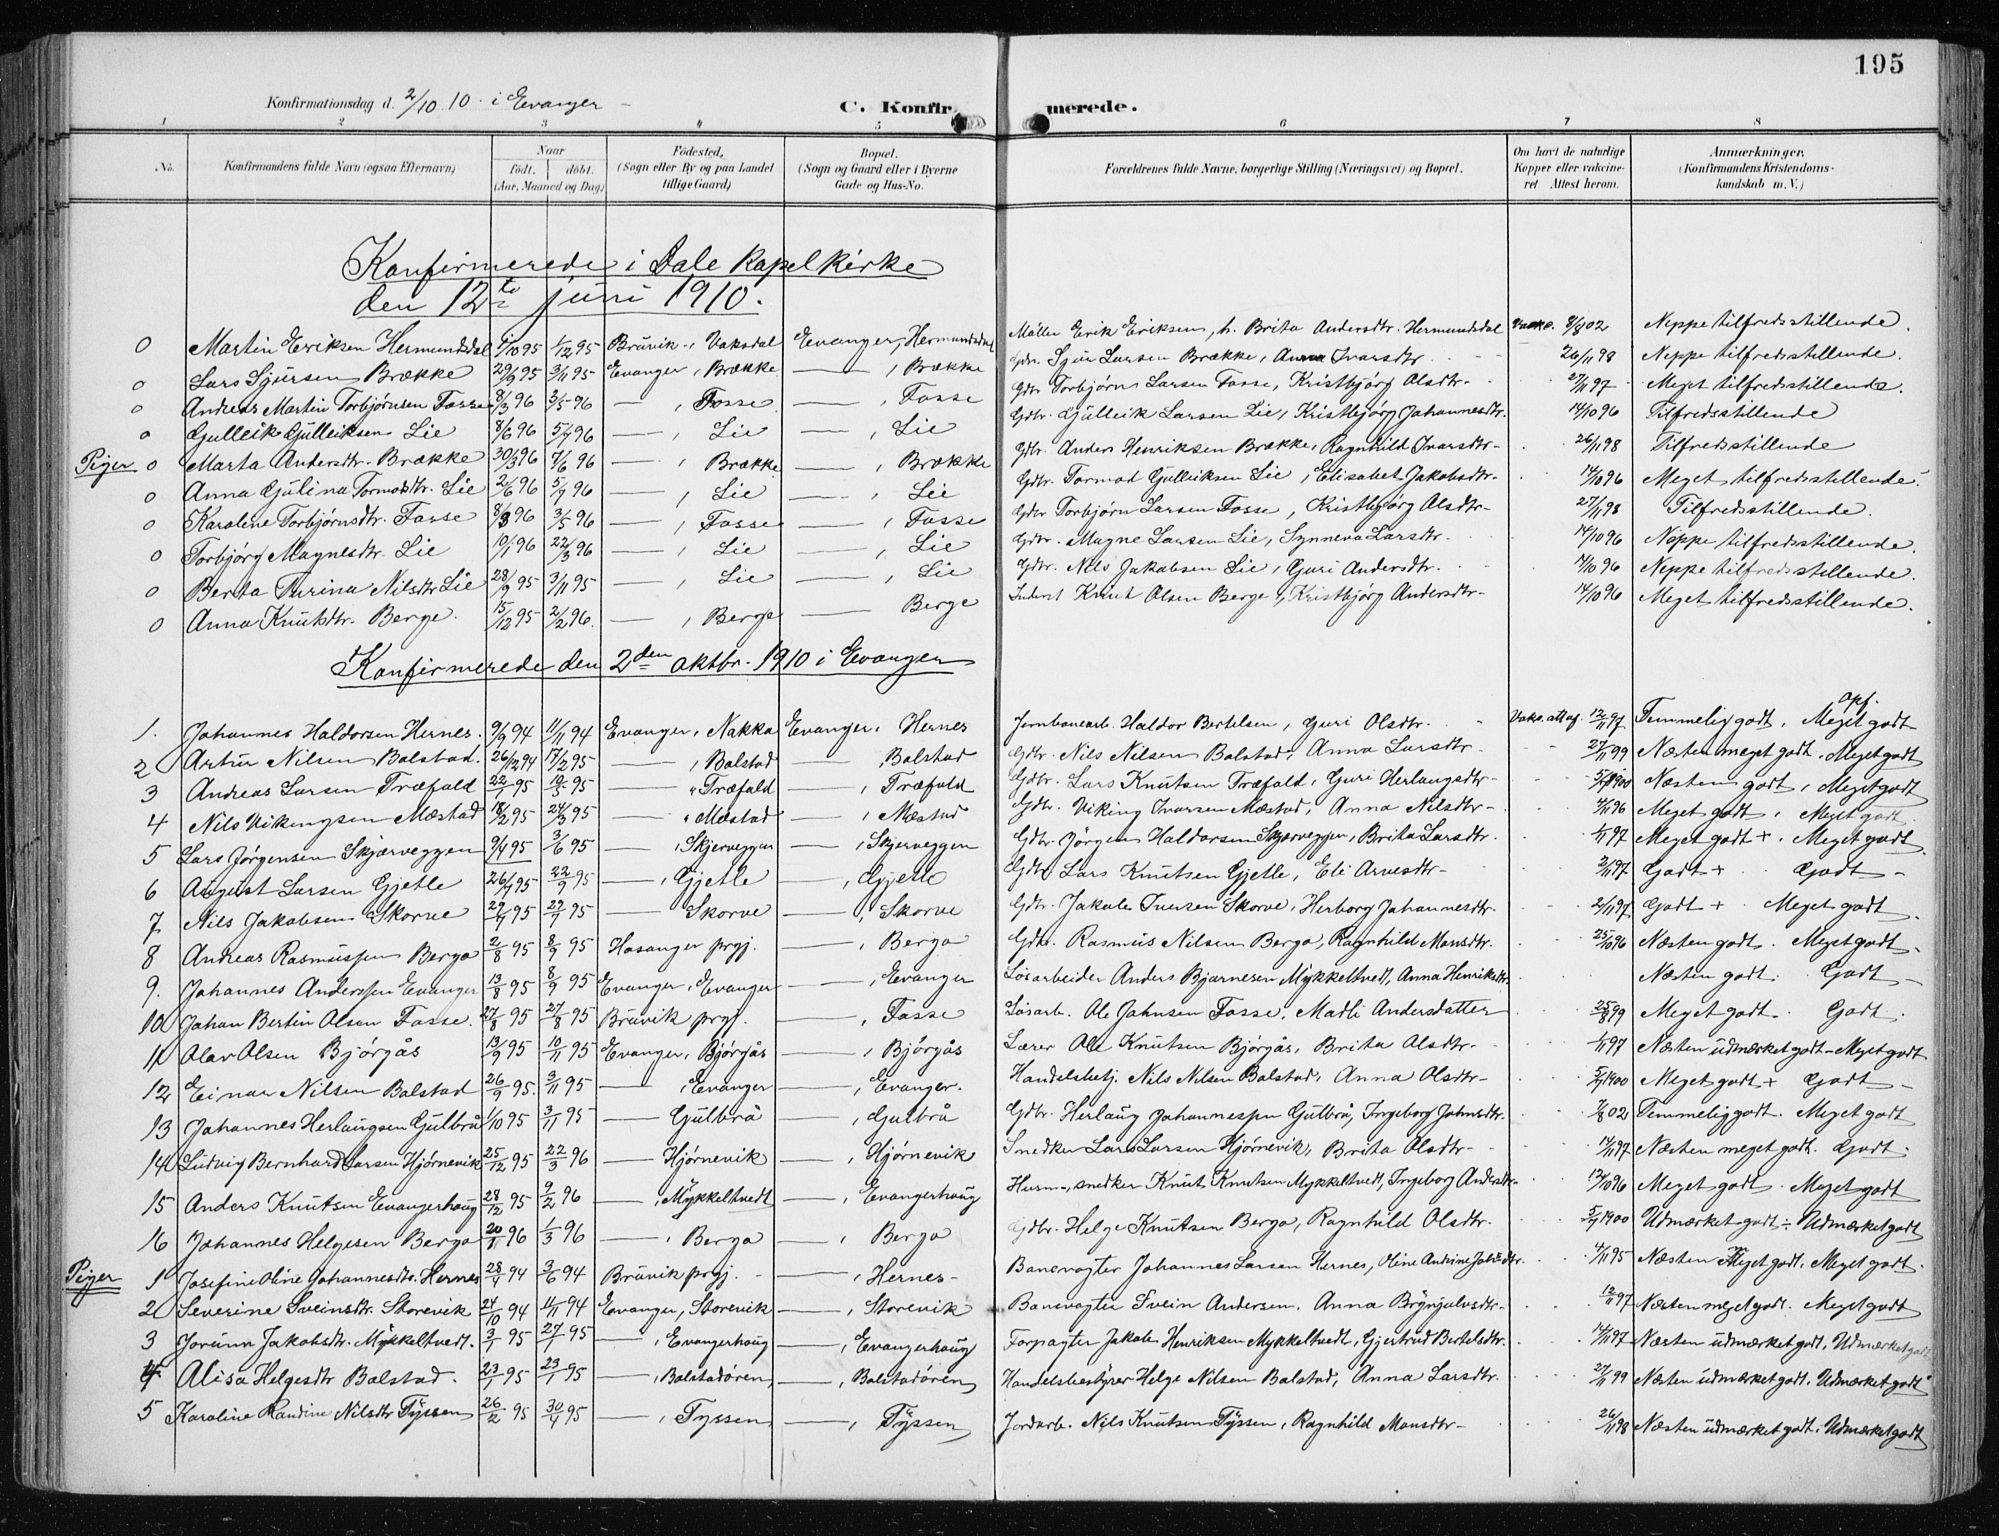 195
Konfirmationsdag d. 2/10 10. i Evanger
C. Konfirmerede.
1 2 3 4 5 6 7 8
No. Konfirmandens fulde Navn (ogsaa Efternavn) Naar født. døbt. (Aar, Maaned og Dag) Fødested, (Sogn eller By og paa Landet tillige Gaard) Bopæl. (Sogn og Gaard eller i Byerne Gade og Hus-No. Forældrenes fulde Navne, borgerlige Stilling (Næringsvei) og Bopæl. Om havt de naturlige Kopper eller vakcineret Attest herom. Anmærkninger. (Konfirmandens Kristendomskundskab m. V.)
Konfirmerede i Dale Kapelkirke
den 12te juni 1910.
0 Martin Eriksen Hermundsdal 1/10 95 1/12 95 Bruvik, Vaksdal Evanger, Hermundsdal Møller Erik Eriksen, h. Brita Andersdtr. Hermundsdal Vakc. 8/8 02 Neppe tilfredsstillende.
0 Lars Sjursen Brække 29/9 95 3/11 95 Evanger, Brække — , Brække Gdr. Sjur Larsen Brække, Anna Ivarsdtr 26/11 98 Neppe tilfredsstillende.
0 Andreas Martin Torbjørnsen Fosse 8/3 96 3/5 96 — , Fosse — , Fosse Gdr Torbjørn Larsen Fosse, Kristbjørg Olsdtr. 27/11 97 Meget tilfredsstillende.
0 Gulleik Gulleiksen Lie 8/6 96 5/7 96 — , Lie — , Lie Gdbr. Gulleik Larsen Lie, Kristbjørg Johannesdtr. 14/10 96 Tilfredsstillende
Piger 0 Marta Andersdtr. Brække 30/3 96 7/6 96 — , Brække — , Brække Gdbr. Anders Henriksen Brække, Ragnhild Ivarsdtr 26/11 98 Tilfredsstillende
0 Anna Gulina Tormodsdtr. Lie 2/6 96 5/7 96 — , Lie — , Lie Gdbr. Tormod Gulleiksen Lie, Elisabet Jakobsdtr 14/10 96 Meget tilfredsstillende.
0 Karoline Torbjørnsdtr. Fosse 8/3 96 3/5 96 — , Fosse — , Fosse Gdbr Torbjørn Larsen Fosse, Kristbjørg Olsdtr 27/11 98 Tilfredsstillende.
0 Torbjørg Magnesdtr. Lie 10/1 96 22/3 96 — , Lie — , Lie Gdbr. Magne Larsen Lie, Synneva Larsdtr 14/10 96 Neppe tilfredsstillende.
0 Berta Turina Nilsdtr Lie 28/9 95 3/11 95 — , Lie — , Lie Gdbr. Nils Jakobsen Lie, Guri Andersdtr. 14/10 96 Neppe tilfredsstillende.
0 Anna Knutsdtr. Berge. 15/12 95 2/2 96. — , Berge — Berge Inderst Knut Olsen Berge, Kristbjørg Andersdtr 14/10 96 Meget tilfredsstillende.
Konfirmerede den 2den oktbr. 1910 i Evanger
1. Johannes Haldorsen Hernes. 9/9 94 11/11 94 Evanger, Nakka Evanger, Hernes Jernbanearb. Haldor Bertelsen, Guri Olsdtr. Vakc. att af. 12/11 97. Temmelig godt. opf. Meget godt
2 Artur Nilsen Bolstad. 26/12 94 17/2 95 — , Bolstad — Bolstad Gdbr. Nils Nilsen Bolstad, Anna Larsdtr 27/11 99 Næsten meget godt. Meget godt
3 Andreas Larsen Træfald 22/1 95 10/3 95 — Træfald — , Træfald Gdbr. Lars Knutsen Træfald, Guri Herlaugsdtr 5/7 1900 Næsten godt, Meget godt
4 Nils Vikingsen Mæstad 18/2 95 24/3 95 — Mæstad — , Mæstad Gdbr. Viking Ivarsen Mæstad, Anna Nilsdtr 4/11 96 Meget godt, Meget godt
5 Lars Jørgensen Skjærveggen 9/4 95 3/6 95 — , Skjerveggen — , Skjerveggen Gdbr. Jørgen Haldorsen Skjærveggen, Brita Larsdtr. 1/11 97 Meget godt +. Meget godt
6 August Larsen Gjetle 26/7 95 22/9 95 — , Gjetle — , Gjetle Gdbr Lars Knutsen Gjetle, Eli Arnesdtr 2/11 97 Godt + Godt
7 Nils Jakobsen Skorve 29/4 95 29/4 95 — Skorve — , Skorve Gdbr. Jakob Iversen Skorve, Herborg Johannesdtr. 2/11 97 Godt + Meget godt
8 Andreas Rasmussen Berga 2/8 95 8/9 95 Hosanger prgj. — , Berga Gdbr. Rasmus Nilsen Berga, Ragnhild Monsdtr. 25/10 96 Næsten godt. Meget godt
9. Johannes Anderssen Evanger 13/8 95 8/9 95 Evanger, Evanger — , Evanger Løsarbeider Anders Bjarnesen Mykkeltvedt, Anna Henriksdtr Næsten godt. Godt
10 Johan Bertin Olsen Fosse. 27/8 95 27/8 95 Bruvik prgj. — , Fosse Løsarb. Ole Johnsen Fosse, Madli Andersdatter 25/8 99 Meget godt. Godt.
11 Olav Olsen Bjørgås 13/9 95 10/11 95 Evanger, Bjørgås — , Bjørgås Lærer Ole Knutsen Bjørgås, Brita Olsdtr 1/11 97 Næsten udmærket godt - Meget godt
12 Einar Nilsen Bolstad 26/9 95. 3/11 95 — , Evanger — , Evanger. Handelsbetj. Nils Nilsen Bolstad, Anna Olsdtr 5/7 1900 Meget godt + Godt
13 Johannes Herlaugsen Gulbrå 1/10 95 3/11 95 — Gulbrå — , Gulbrå Gdbr. Herlaug Johannessen Gulbrå, Ingeborg Johnsdtr. 7/8 02 Temmelig godt. Meget godt
14 Ludvig Bernhard Larsen Hjørnevik 25/12 95 22/3 96 — Hjørnevik — , Hjørnevik Snedker Lars Larsen Hjørnevik, Brita Olsdtr 14/11 97 Næsten meget godt. Godt.
15 Anders Knutsen Evangerhaug 28/12 95 9/2 96 — , Mykkeltvedt — , Evangerhaug Husm., snedker Knut Knutsen Mykkeltvedt, Ingeborg Andersdtr 13/10 96 Meget godt. Meget godt
16 Johannes Helgesen Berga 20/1 96 1/3 96 — , Berga — , Berga Gdbr. Helge Knutsen Berga, Ragnhild Olsdtr. 5/7 1900 Udmærket godt ÷ Udmærket godt
Piger 1 Josefine Oline Johannesdtr. Hernes 28/4 94 3/6 94 Bruvik prgj. — , Hernes Banevogter Johannes Larsen Hernes, Oline Andrine 4/11 95 Næsten Meget godt. Meget godt.
2 Severine Sveinsdtr. Storevik 24/10 94 11/11 94 Evanger, Storevik — , Storevik Banevogter Svein Andersen. Anna Brynjulvsdtr 12/11 97 Næsten meget godt. Meget godt
3 Jorunn Jakobsdtr. Mykkeltvedt. 3/1 95 27/1 95 — , Evangerhaug — , Evangerhaug Forpagter Jakob Henriksen Mykkeltvedt, Gjertrud Bertelsdtr 14/11 97 Næsten udmærket godt. Udmærket godt
4. Alisa Helgesdtr Bolstad. 23/1 95 23/1 95 — , Bolstadören — , Bolstadören Handelsbestyrer Helge Nilsen Bolstad, Anna Larsdtr. 27/11 99 Næsten udmærket godt. Udmærket godt
5 Karoline Randine Nilsdtr Tyssen 26/2 95 30/4 95 — , Tyssen — , Tyssen Jordarb. Nils Knutsen Tyssen, Ragnhild Monsdtr 26/11 98 Næsten udmærket godt. Udmærket godt